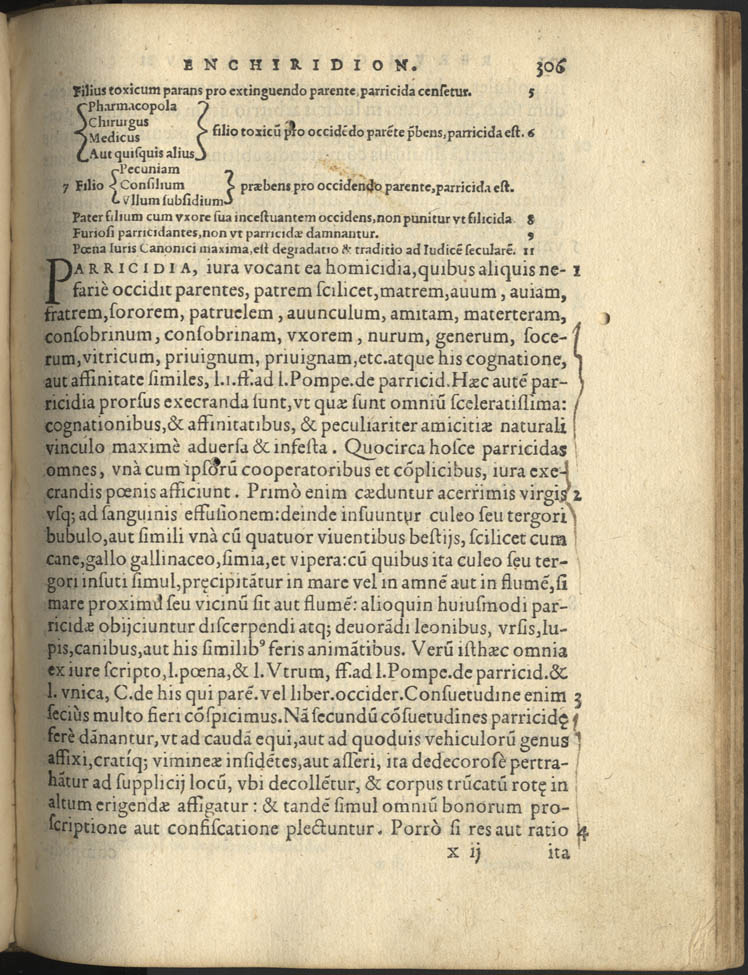 ENCHIRIDION. 306
Filius toxicum parans pro extinguendo parente, parricida censetur. 5
Pharmacopola
Chirurgus
Medicus
Aut quisquis alius
filio toxicū pro occidēdo parēte p̄bens, parricida est. 6
Pecuniam
7 Filio Consilium
Vllum subsidium
præbens pro occidendo parente, parricida est.
Pater filium cum vxore sua incestuantem occidens, non punitur vt filicida 8
Furiosi parricidantes, non vt parricidæ damnantur. 9
Pœna Iuris Canonici maxima, est degradatio & traditio ad Iudicē secularē. 11
PARRICIDIA, iura vocant ea homicidia, quibus aliquis ne- 1
fariè occidit parentes, patrem scilicet, matrem, auum, auiam,
fratrem, sororem, patruelem, auunculum, amitam, materteram,
consobrinum, consobrinam, vxorem, nurum, generum, soce-
rum, vitricum, priuignum, priuignam, etc. atque his cognatione,
aut affinitate similes, l.1.ff.ad l.Pompe.de parricid. Hæc autē par-
ricidia prorsus execranda sunt, vt quæ sunt omniū sceleratissima:
cognationibus, & affinitatibus, & peculiariter amicitiæ naturali
vinculo maximè aduersa & infesta. Quocirca hosce parricidas
omnes, vnà cum ipsorū cooperatoribus et cōplicibus, iura exe-
crandis pœnis afficiunt. Primò enim cæduntur acerrimis virgis 2
vsq; ad sanguinis effusionem: deinde insuuntur culeo seu tergori
bubulo, aut simili vnà cū quatuor viuentibus bestijs, scilicet cum
cane, gallo gallinaceo, simia, et vipera: cū quibus ita culeo seu ter-
gori insuti simul, pręcipitātur in mare vel in amnē aut in flumē, si
mare proximū seu vicinū sit aut flumē: alioquin huiusmodi par-
ricidæ obijciuntur discerpendi atq; deuorādi leonibus, vrsis, lu-
pis, canibus, aut his similibꝰ feris animātibus. Verū isthæc omnia
ex iure scripto, l.pœna, & l.Vtrum, ff.ad l.Pompe.de parricid.&
l. vnica, C.de his qui parē.vel liber.occider. Consuetudine enim 3
seciùs multo fieri cōspicimus. Nā secundū cōsuetudines parricidę
ferè dānantur, vt ad caudā equi, aut ad quoduis vehiculorū genus
affixi, cratíq; vimineæ insidētes, aut asseri, ita dedecorosè pertra-
hātur ad supplicij locū, vbi decollētur, & corpus trūcatū rotę in
altum erigendæ affigatur: & tandē simul omniū bonorum pro-
scriptione aut confiscatione plectuntur. Porrò si res aut ratio 4
x ij ita